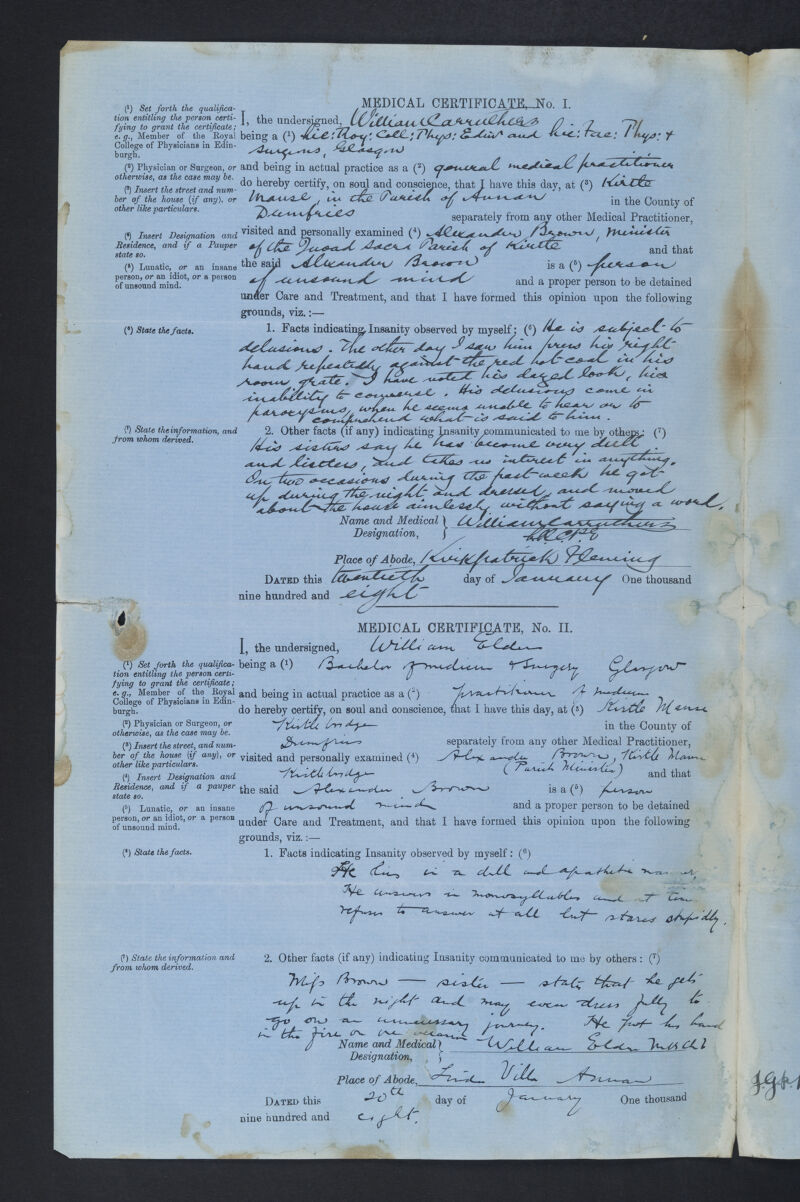 MEDICAL CERTIFICATE, No. I.
(¹) Set forth the qualifica-
tion entitling the person certi-
fying to grant the certificate;
e.g., Member of the Royal
College of Physicians in Edin-
burgh.
(²) Physician or Surgeon, or
otherwise, as the case may be.
(³) Insert the street and num-
ber of the house (if any), or
other like particulars.
(⁴) Insert Designation and
Residence, and if a Pauper
state so.
(⁵) Lunatic, or an insane
person, or an idiot, or a person
of unsound mind.
I, the undersigned, William Carruthers
being a (¹) Lic: Roy: Coll: Phys: Edin and Lic: Fac: Phys: +
Surgeons, Glasgow
and being in actual practice as a (²) general medical practitioner
do hereby certify, on soul and conscience, that I have this day, at (³) Kirtle
Manse, in the Parish of Annan in the County of
Dumfries separately from any other Medical Practitioner,
visited and personally examined (⁴) Alexander Brown, Minister
of the Quoad Sacra Parish of Kirtle and that
the said Alexander Brown is a (⁵) person
of unsound mind and a proper person to be detained
under Care and Treatment, and that I have formed this opinion upon the following
grounds, viz.:—
(⁶) State the facts.
1. Facts indicating Insanity observed by myself; (⁶) He is subject to
delusions. The other day I saw him press his right
hand repeatedly against the red hot coal in his
room grate. I have noted his dazed look, his
inability to converse. His delusions come in
paroxysms, when he seems unable to hear or to
comprehend what is said to him.
(⁷) State the information, and
from whom derived.
2. Other facts (if any) indicating Insanity communicated to me by others: (⁷)
His sisters say he has become very dull
and listless, and takes no interest in anything.
On two occasions during the past week he got
up during the night and dressed, and moved
about the house aimlessly without saying a word.
Name and Medical Designation, } William Carruthers
LRCPE
Place of Abode, Kirkpatrick Fleming
DATED this twentieth day of January One thousand
nine hundred and eight
MEDICAL CERTIFICATE, No. II.
(¹) Set forth the qualifica-
tion entitling the person certi-
fying to grant the certificate;
e.g., Member of the Royal
College of Physicians in Edin-
burgh.
(²) Physician or Surgeon, or
otherwise, as the case may be.
(³) Insert the street, and num-
ber of the house (if any), or
other like particulars.
(⁴) Insert Designation and
Residence, and if a pauper
state so.
(⁵) Lunatic, or an insane
person, or an idiot, or a person
of unsound mind.
I, the undersigned, William Elder
being a (¹) Bachelor of medicine & Surgery Glasgow
and being in actual practice as a (²) practitioner of medicine
do hereby certify, on soul and conscience, that I have this day, at (³) Kirtle Manse
Kirtlebridge in the County of
Dumfries separately from any other Medical Practitioner,
visited and personally examined (⁴) Alexander Brown, Kirtle Manse
Kirtlebridge (Parish Minister) and that
the said Alexander Brown is a (⁵) person
of unsound mind and a proper person to be detained
under Care and Treatment, and that I have formed this opinion upon the following
grounds, viz.:—
(⁶) State the facts.
1. Facts indicating Insanity observed by myself: (⁶)
He lies in a dull and apathetic manner,
He answers in monosyllables and at times
refuses to answer at all but stares stupidly.
(⁷) State the information and
from whom derived.
2. Other facts (if any) indicating Insanity communicated to me by others: (⁷)
Miss Brown — sister — states that he gets
up in the night and may even dress fully to
go on an unnecessary journey. He put his hand
in the fire on one occasion
Name and Medical Designation, } William Elder M.B. Ch.B
Place of Abode, Villa Annan
DATED this 20th day of January One thousand
nine hundred and eight.